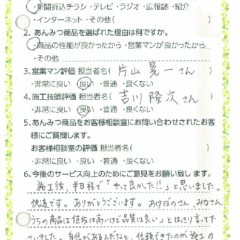 ・新聞折込チラシ・テレビ・ラジオ・広報誌・紹介
・インターネット・その他(　　　　)
2. あんみつ商品を選ばれた理由は何ですか。
・商品の性能が良かったから・営業マンが良かったから
・その他(
3. 営業マン評価 担当者名( 片山 晃一 さん
・非常に良い・良い・普通・良くない
4. 施工技師評価 担当者名( 吉川 隆次 さん
・非常に良い・良い・普通・良くない
5. あんみつ商品をお客様相談室にお問い合わせされたお客様にご質問します。
お客様相談室の評価 担当者名(
・非常に良い・良い・普通・良くない
6. 今後のサービス向上のためにご意見をお願い致します。
施工後、半日程で「やって良かった!!」と思いました。
快適です。ありがとうございます。
うちの商品は値段はあいけど品質は良い」とはっきり言って